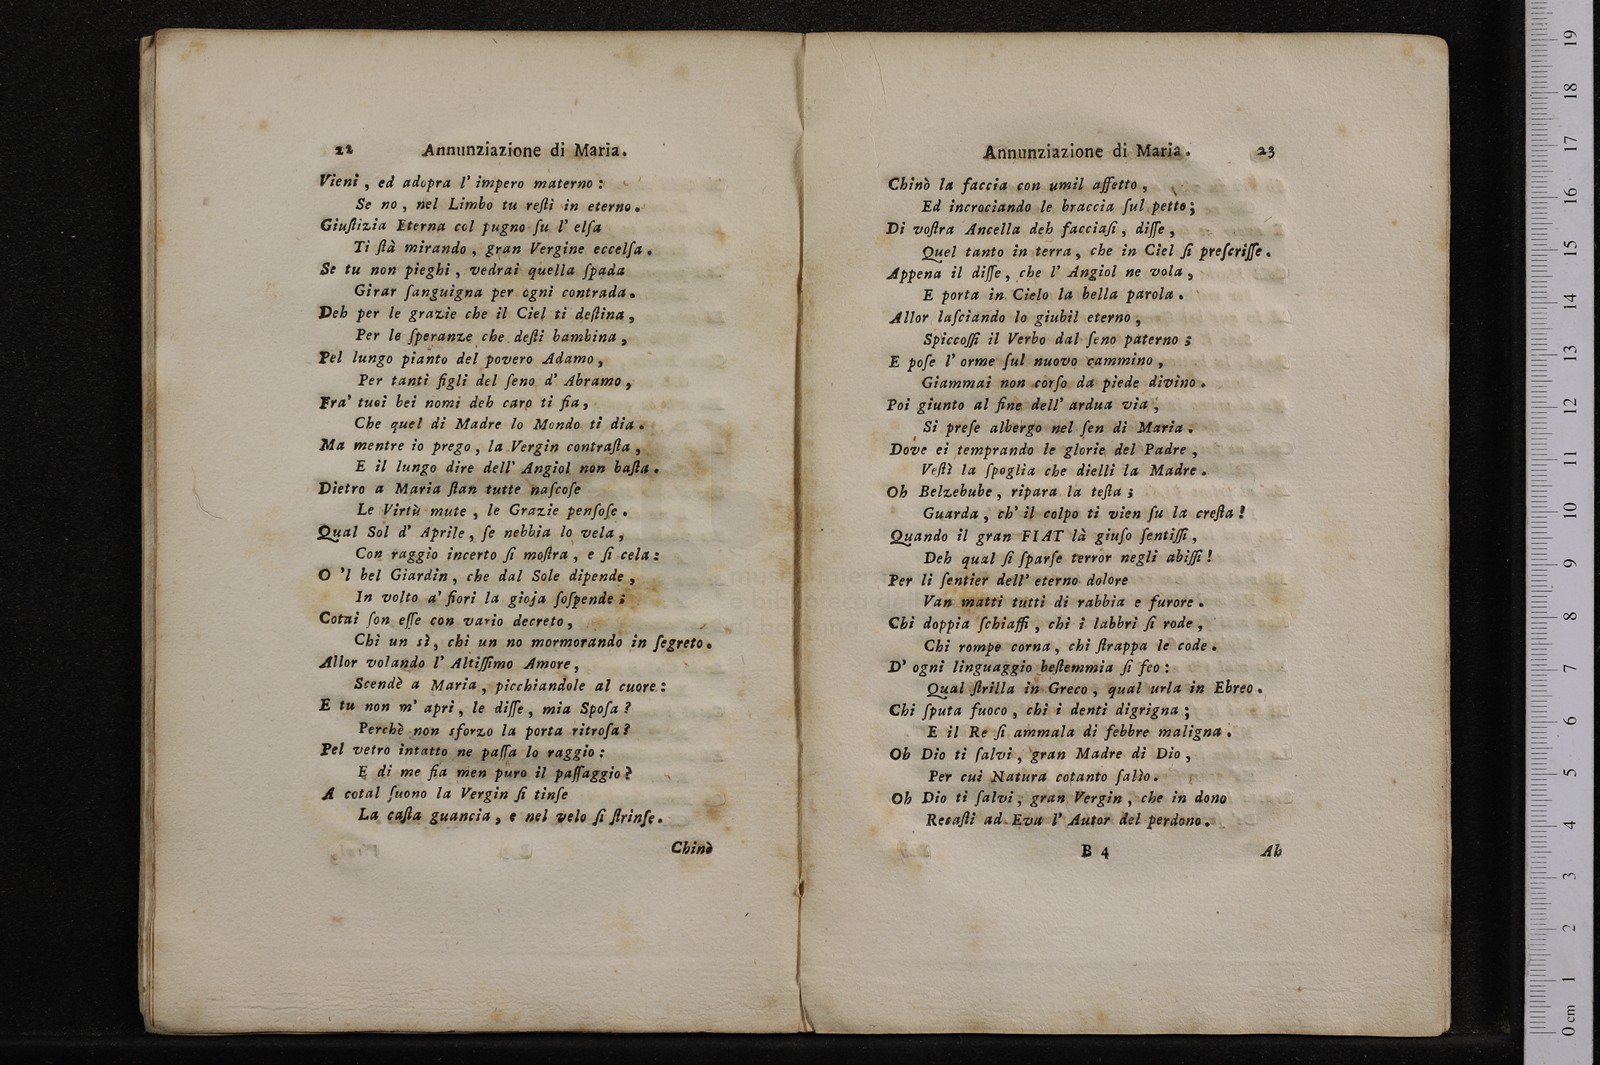 22 Annunziazione di Maria.
Vieni, ed adopra l' impero materno:
Se no, nel Limbo tu reſti in eterno.
Giuſtizia Eterna col pugno ſu l' elſa
Ti ſtà mirando, gran Vergine eccelſa.
Se tu non pieghi, vedrai quella ſpada
Girar ſanguigna per ogni contrada.
Deh per le grazie che il Ciel ti deſtina,
Per le ſperanze che deſti bambina,
Pel lungo pianto del povero Adamo,
Per tanti figli del ſeno d' Abramo,
Fra' tuoi bei nomi deh caro ti ſia,
Che quel di Madre lo Mondo ti dia.
Ma mentre io prego, la Vergin contraſta,
E il lungo dire dell' Angiol non baſta.
Dietro a Maria ſtan tutte naſcoſe
Le Virtù mute, le Grazie penſoſe.
Qual Sol d' Aprile, ſe nebbia lo vela,
Con raggio incerto ſi moſtra, e ſi cela:
O 'l bel Giardin, che dal Sole dipende,
In volto a' fiori la gioja ſoſpende;
Cotai ſon eſſe con vario decreto,
Chi un sì, chi un no mormorando in ſegreto.
Allor volando l' Altiſſimo Amore,
Scendè a Maria, picchiandole al cuore:
E tu non m' apri, le diſſe, mia Spoſa?
Perchè non sforzo la porta ritroſa?
Pel vetro intatto ne paſſa lo raggio:
E di me fia men puro il paſſaggio?
A cotal ſuono la Vergin ſi tinſe
La caſta guancia, e nel velo ſi ſtrinſe.
Chinò
Annunziazione di Maria. 23
Chinò la faccia con umil affetto,
Ed incrociando le braccia ſul petto;
Di voſtra Ancella deh facciaſi, diſſe,
Quel tanto in terra, che in Ciel ſi preſcriſſe.
Appena il diſſe, che l' Angiol ne vola,
E porta in Cielo la bella parola.
Allor laſciando lo giubil eterno,
Spiccoſſi il Verbo dal ſeno paterno;
E poſe l' orme ſul nuovo cammino,
Giammai non corſo da piede divino.
Poi giunto al fine dell' ardua via,
Si preſe albergo nel ſen di Maria.
Dove ei temprando le glorie del Padre,
Veſtì la ſpoglia che dielli la Madre.
Oh Belzebube, ripara la teſta;
Guarda, ch' il colpo ti vien ſu la creſta!
Quando il gran FIAT là giuſo ſentiſſi,
Deh qual ſi ſparſe terror negli abiſſi!
Per li ſentier dell' eterno dolore
Van matti tutti di rabbia e furore.
Chi doppia ſchiaffi, chi i labbri ſi rode,
Chi rompe corna, chi ſtrappa le code.
D' ogni linguaggio beſtemmia ſi feo:
Qual ſtrilla in Greco, qual urla in Ebreo.
Chi ſputa fuoco, chi i denti digrigna;
E il Re ſi ammala di febbre maligna.
Oh Dio ti ſalvi, gran Madre di Dio,
Per cui Natura cotanto ſalìo.
Oh Dio ti ſalvi, gran Vergin, che in dono
Recaſti ad Eva l' Autor del perdono.
B 4 Ah
0 cm 1 2 3 4 5 6 7 8 9 10 11 12 13 14 15 16 17 18 19